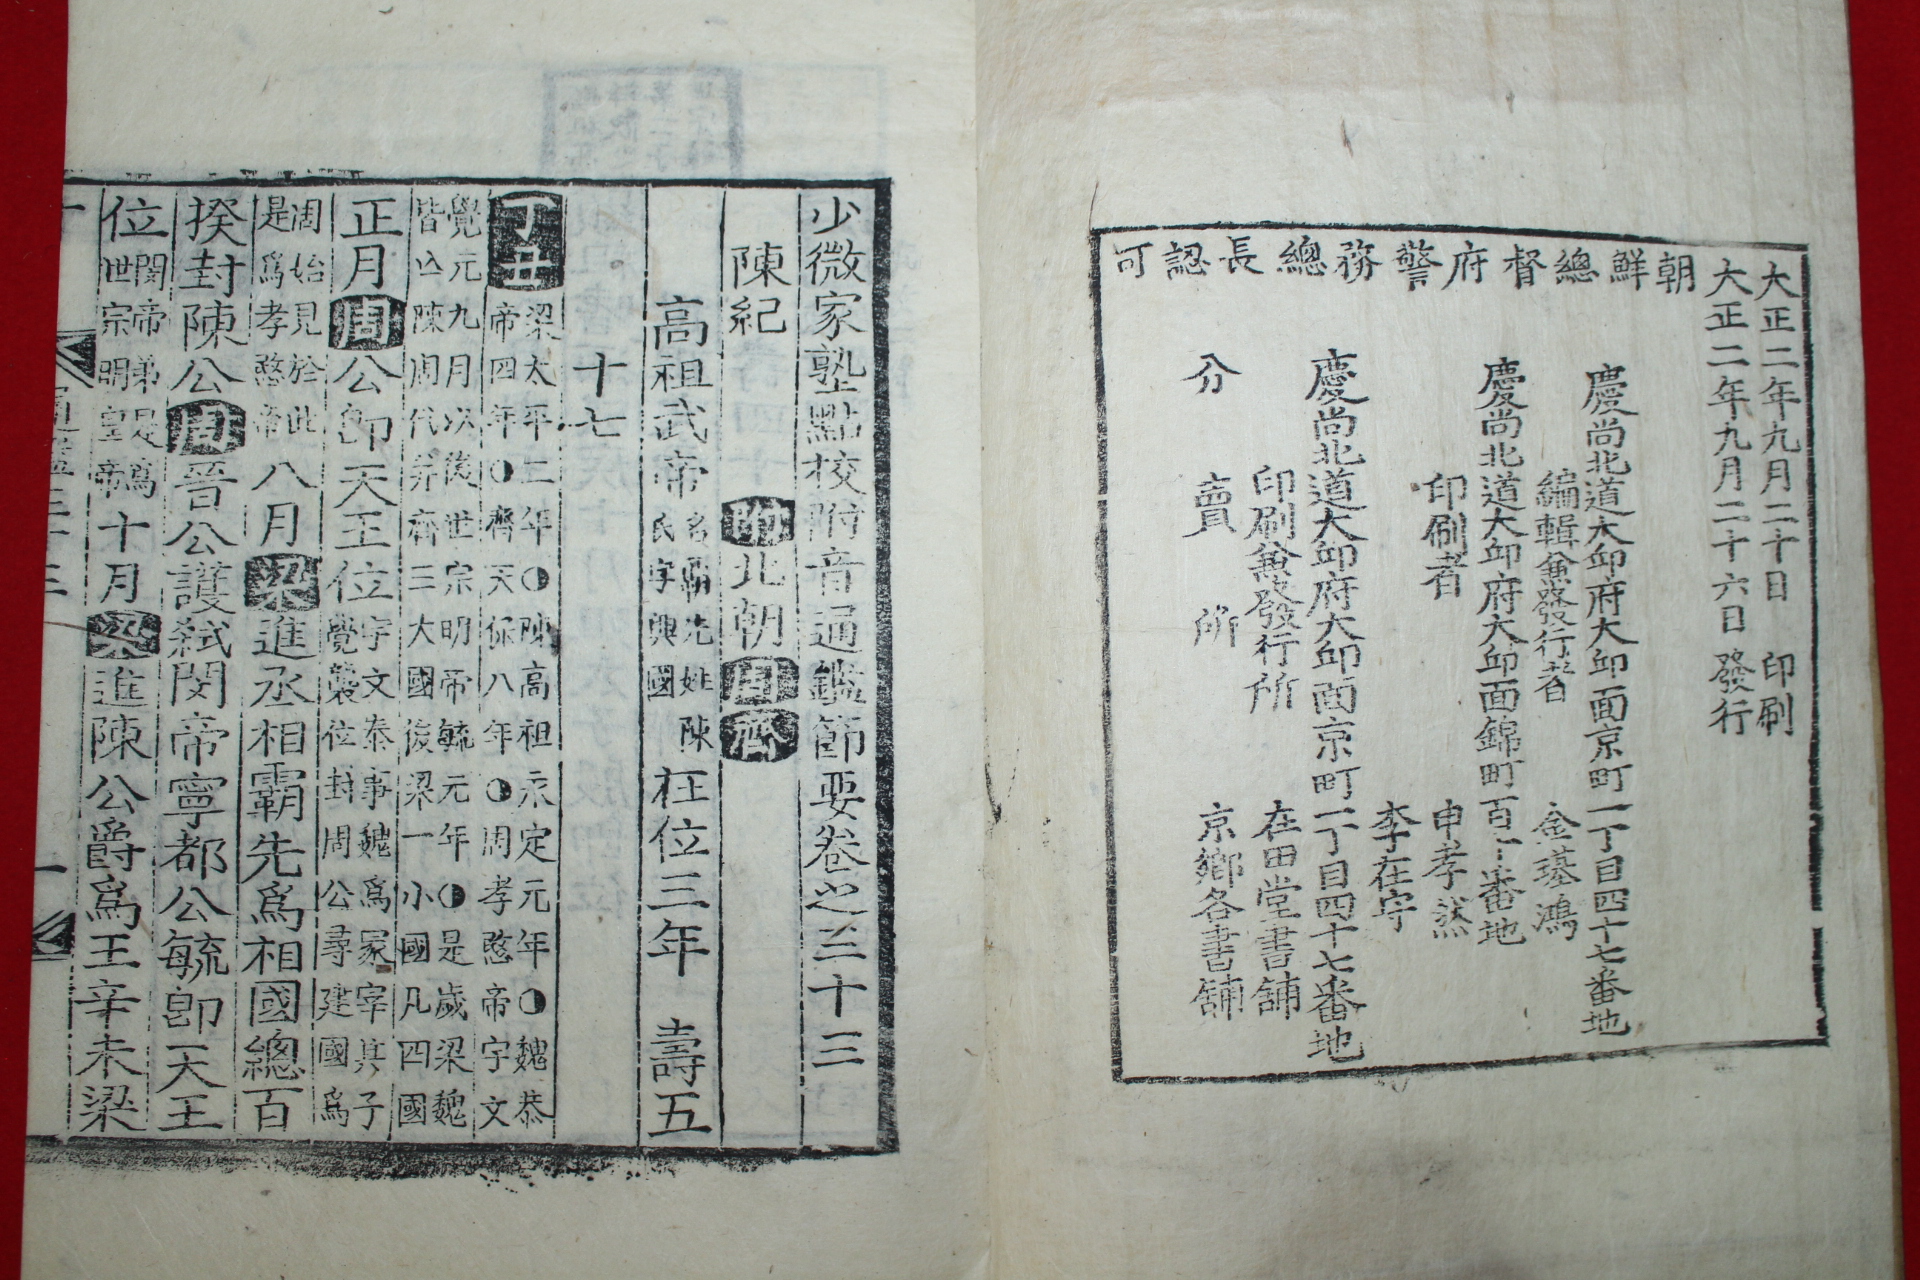 大正二年九月二十日 印刷
大正二年九月二十六日 發行
朝鮮總督府警務總長認可
慶尚北道大邱府大邱面京町一丁目四十七番地
編輯兼發行者 金璂鴻
慶尚北道大邱府大邱面錦町百二十番地
印刷者 申孝然
李在守
慶尚北道大邱府大邱面京町一丁目四十七番地
印刷兼發行所 在田堂書舖
分賣所 京鄉各書舖
少微家塾點校附音通鑑節要卷之三十三
陳紀 附北朝周齊
高祖武帝名霸先姓陳氏字興國在位三年 壽五
十七
丁丑梁太平二年◑陳高祖永定元年◑魏恭
帝四年◑齊天保八年◑周孝愍帝宇文
覺元九月以後世宗明帝毓元年◑是歲梁魏
皆亡陳周代并齊三大國後梁一小國凡四國
正月周公卽天王位宇文泰事魏爲冢宰其子
覺襲位封周公尋建國爲
周始見於此
是爲孝愍帝八月梁進丞相霸先爲相國總百
揆封陳公周晉公護弑閔帝寧都公毓卽天王
位閔帝弟是爲
世宗明皇帝十月梁進陳公爵爲王辛未梁